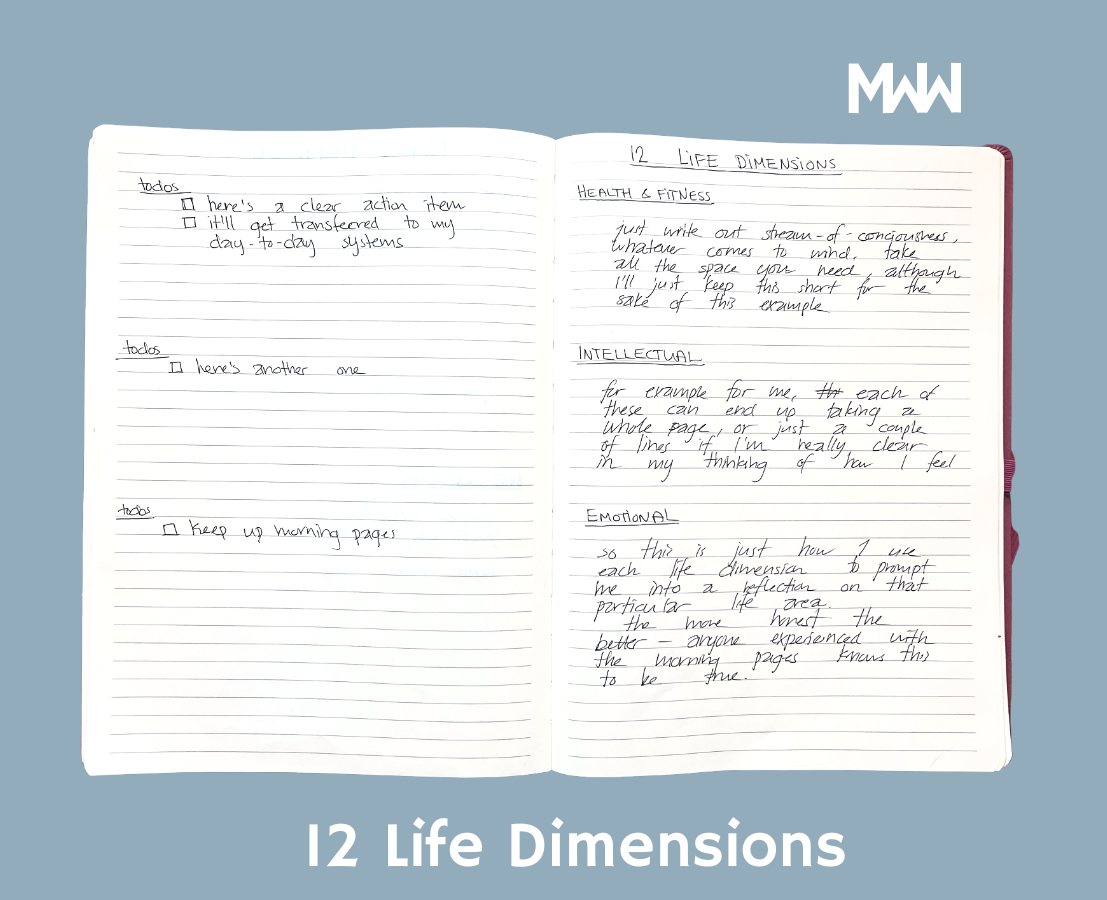 MWW
todos
☐ here's a clear action item
☐ it'll get transferred to my
day-to-day systems
todos
☐ here's another one
todos
☐ keep up morning pages
12 LiFE DiMENSiONS
HEALTH & FiTNESS
just write out stream-of-conciousness,
whatever comes to mind. take
all the space you need, although
I'll just keep this short for the
sake of this example
INTELLECTUAL
for example for me, tht each of
these can end up taking a
whole page, or just a couple
of lines if I'm really clear
in my thinking of how I feel
EMOTiONAL
so this is just how I use
each life dimension to prompt
me into a reflection on that
particular life area.
the more honest the
better - anyone experienced with
the morning pages knows this
to be true.
12 Life Dimensions